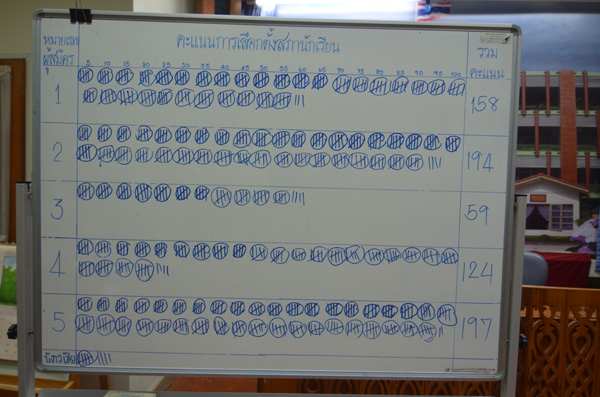 คะแนนการเลือกตั้งสภานักเรียน
หมายเลข
ผู้สมัคร
รวม
คะแนน
5 10 15 20 25 30 35 40 45 50 55 60 65 70 75 80 85 90 95 100
1 158
2 194
3 59
4 124
5 197